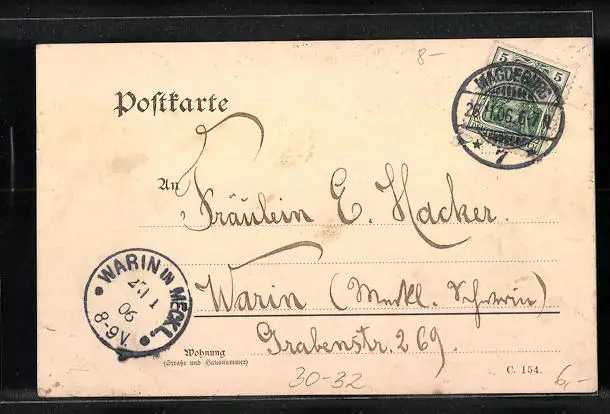 8-
5 5
MAGDEBURG
.06. 6-7 N
* 7 *
Postkarte
An
Fräulein E. Hacker.
Warin (Meckl. Schwerin)
Grabenstr. 269.
WARIN IN MECKL.
06
8-9V.
Wohnung
(Straße und Hausnummer)
C. 154.
30-32
6,-